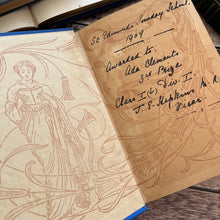 St Edmunds Sunday School.
1904
Awarded to
Ada Clements
3rd Prize
Class I (b) Div. I.
J. E. Hopkins M.A
Vicar.